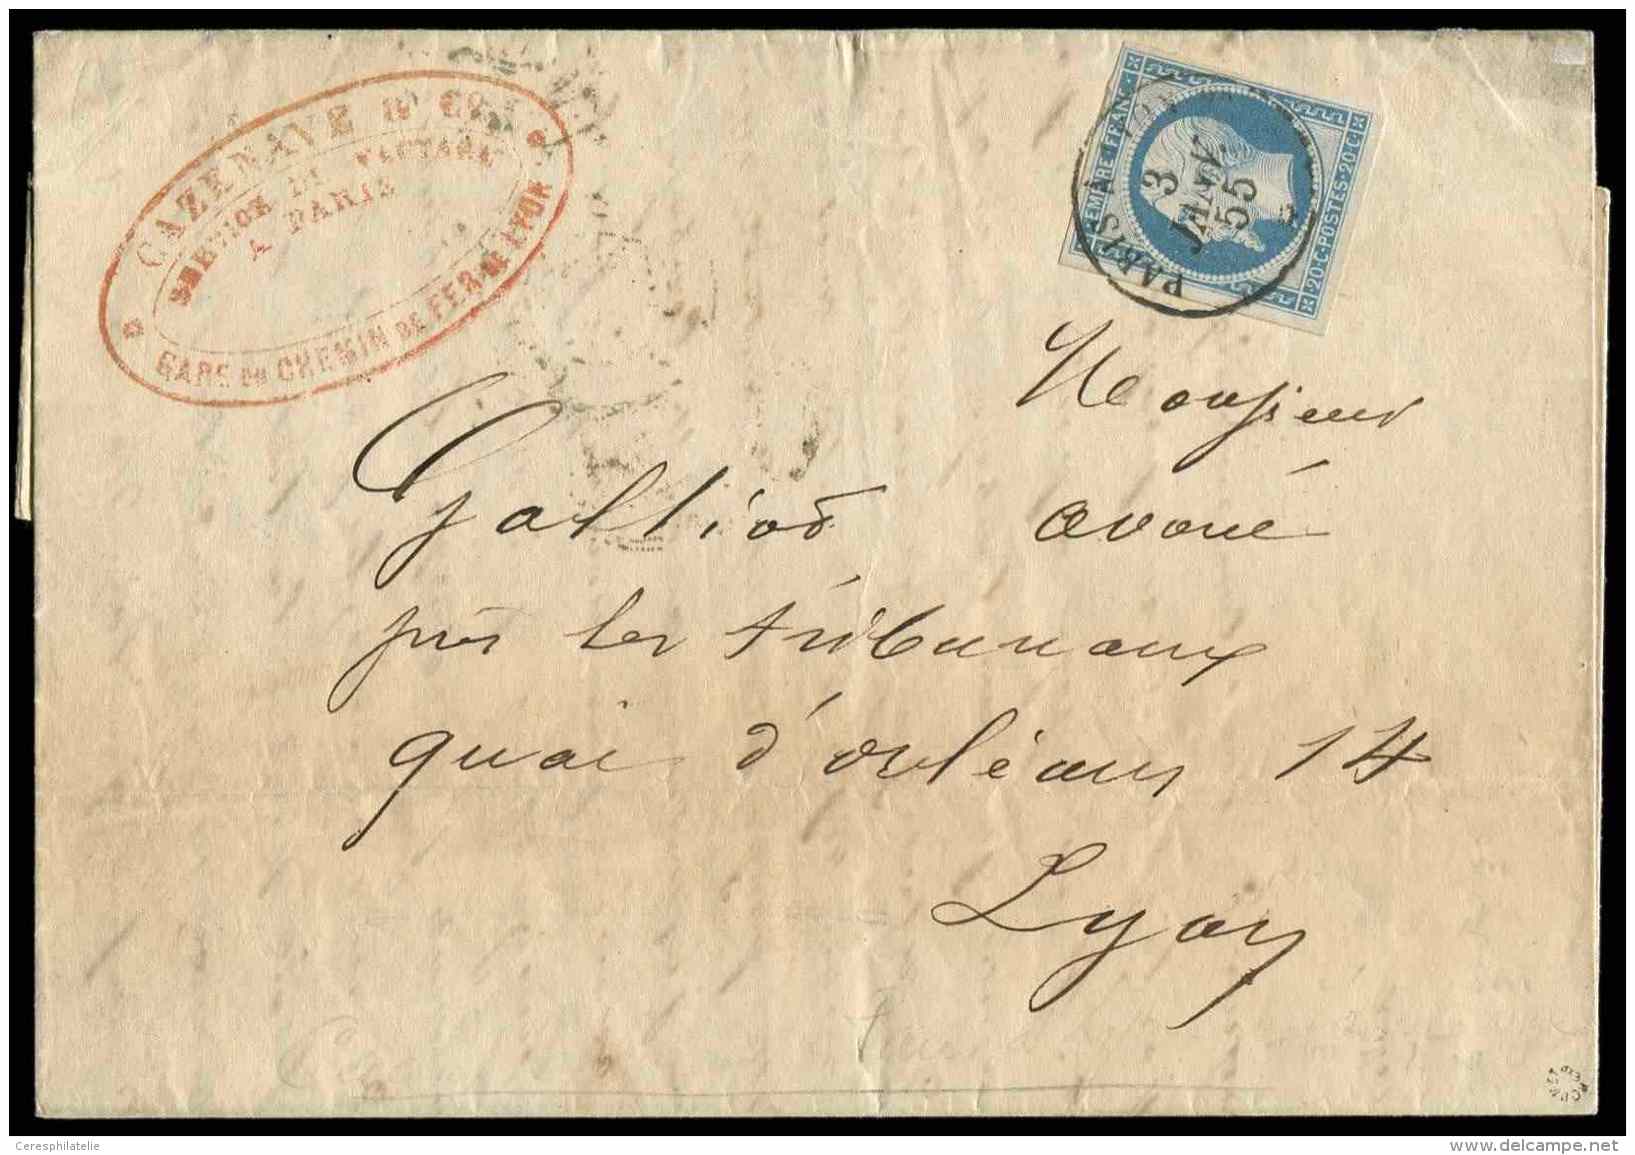 CAZENAVE ET Cie
SERVICE DU FACTAGE
A PARIS
GARE DU CHEMIN DE FER DE LYON
EMPIRE FRANC
20.C·POSTES·20.C
PARIS
3
JANV
55
Monsieur
Galliot avoué
près les tribunaux
quai d'orléans 14
Lyon
Ceresphilatelie
www.delcampe.net